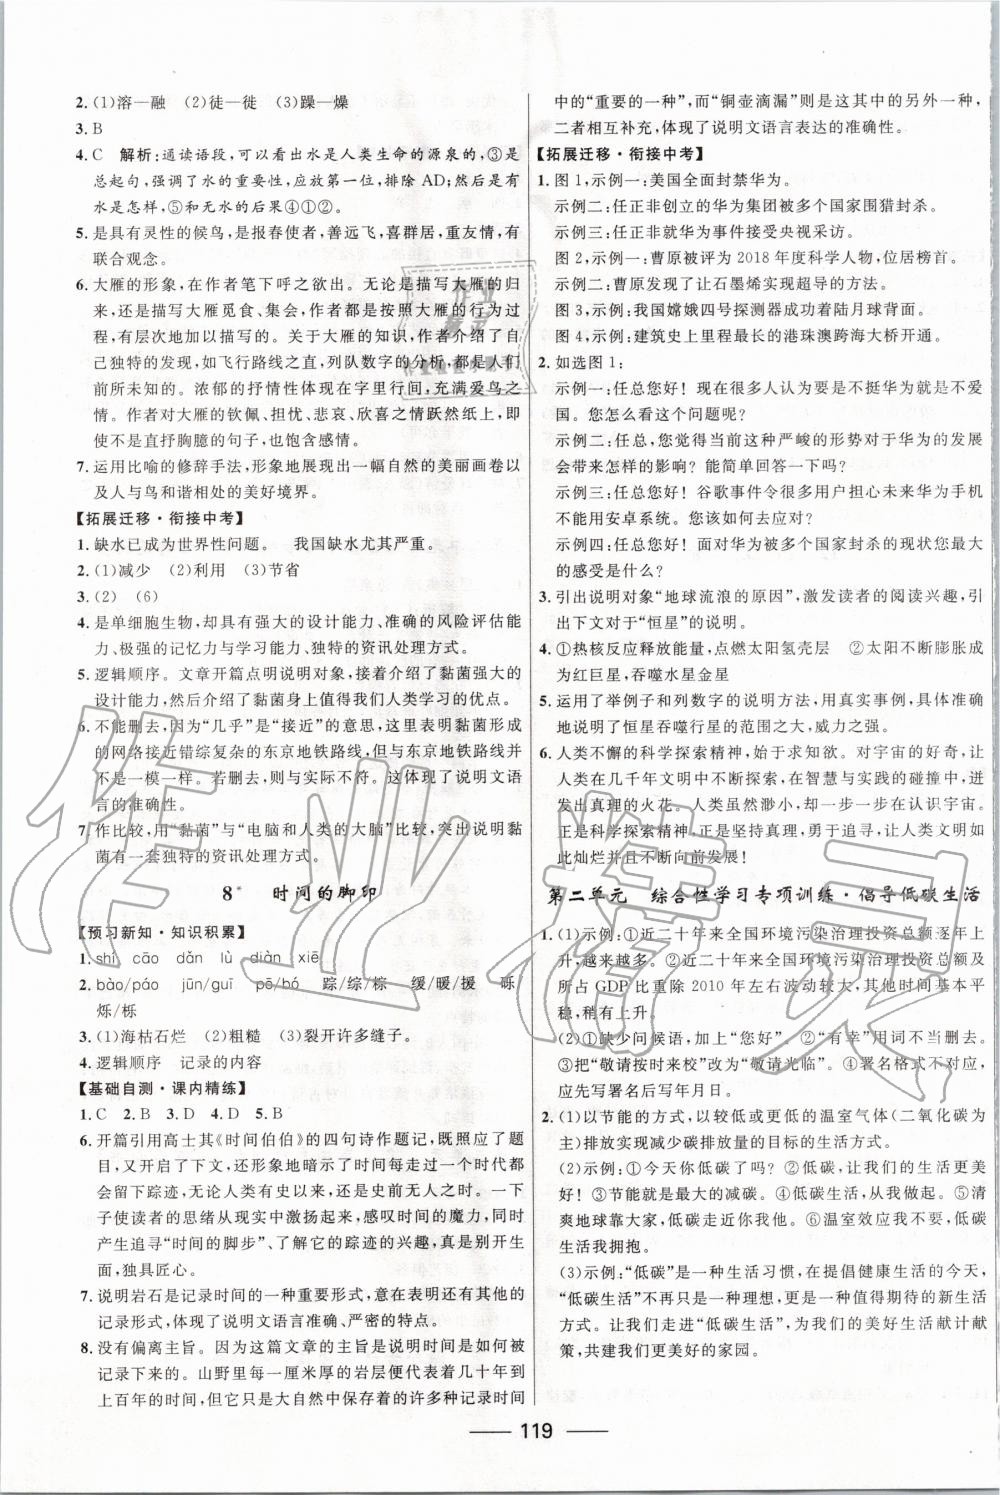 2. (1)溶—融　(2)徒—徙　(3)躁—燥
3. B
4. C　解析：通读语段，可以看出水是人类生命的源泉的，③是
总起句，强调了水的重要性，应放第一位，排除 AD；然后是有
水是怎样，⑤和无水的后果④①②。
5. 是具有灵性的候鸟，是报春使者，善远飞，喜群居，重友情，有
联合观念。
6. 大雁的形象，在作者笔下呼之欲出。无论是描写大雁的归
来，还是描写大雁觅食、集会，作者都是按照大雁的行为过
程，有层次地加以描写的。关于大雁的知识，作者介绍了自
己独特的发现，如飞行路线之直，列队数字的分析，都是人们
前所未知的。浓郁的抒情性体现在字里行间，充满爱鸟之
情。作者对大雁的钦佩、担忧、悲哀、欣喜之情跃然纸上，即
使不是直抒胸臆的句子，也饱含感情。
7. 运用比喻的修辞手法，形象地展现出一幅自然的美丽画卷以
及人与鸟和谐相处的美好境界。
【拓展迁移·衔接中考】
1. 缺水已成为世界性问题。　我国缺水尤其严重。
2. (1)减少　(2)利用　(3)节省
3. (2)　(6)
4. 是单细胞生物，却具有强大的设计能力、准确的风险评估能
力、极强的记忆力与学习能力、独特的资讯处理方式。
5. 逻辑顺序。文章开篇点明说明对象，接着介绍了黏菌强大的
设计能力，然后介绍了黏菌身上值得我们人类学习的优点。
6. 不能删去，因为“几乎”是“接近”的意思，这里表明黏菌形成
的网络接近错综复杂的东京地铁路线，但与东京地铁路线并
不是一模一样。若删去，则与实际不符。这体现了说明文语
言的准确性。
7. 作比较，用“黏菌”与“电脑和人类的大脑”比较，突出说明黏
菌有一套独特的资讯处理方式。
8*　时间的脚印
【预习新知·知识积累】
1. shí　cāo　dǎn　lù　diàn　xiē
2. bào/páo　jūn/guī　pō/bó　踪/综/棕　缓/暖/援　砾/
烁/栎
3. (1)海枯石烂　(2)粗糙　(3)裂开许多缝子。
4. 逻辑顺序　记录的内容
【基础自测·课内精练】
1. C　2. B　3. D　4. D　5. B
6. 开篇引用高士其《时间伯伯》的四句诗作题记，既照应了题
目，又开启了下文，还形象地暗示了时间每走过一个时代都
会留下踪迹，无论人类有史以来，还是史前无人之时。一下
子使读者的思绪从现实中激扬起来，感叹时间的魔力，同时
产生追寻“时间的脚步”、了解它的踪迹的兴趣，真是别开生
面，独具匠心。
7. 说明岩石是记录时间的一种重要形式，意在表明还有其他的
记录形式，体现了说明文语言准确、严密的特点。
8. 没有偏离主旨。因为这篇文章的主旨是说明时间是如何被
记录下来的。山野里每一厘米厚的岩层便代表着几十年到
上百年的时间，但它只是大自然中保存着的许多种记录时间
中的“重要的一种”，而“铜壶滴漏”则是这其中的另外一种，
二者相互补充，体现了说明文语言表达的准确性。
【拓展迁移·衔接中考】
1. 图 1，示例一：美国全面封禁华为。
示例二：任正非创立的华为集团被多个国家围猎封杀。
示例三：任正非就华为事件接受央视采访。
图 2，示例一：曹原被评为 2018 年度科学人物，位居榜首。
示例二：曹原发现了让石墨烯实现超导的方法。
图 3，示例一：我国嫦娥四号探测器成功着陆月球背面。
示例二：建筑史上里程最长的港珠澳跨海大桥开通。
2. 如选图 1：
示例一：任总您好！现在很多人认为要是不挺华为就是不爱
国。您怎么看这个问题呢？
示例二：任总，您觉得当前这种严峻的形势对于华为的发展
会带来怎样的影响？能简单回答一下吗？
示例三：任总您好！谷歌事件令很多用户担心未来华为手机
不能用安卓系统。您该如何去应对？
示例四：任总您好！面对华为被多个国家封杀的现状您最大
的感受是什么？
3. 引出说明对象“地球流浪的原因”，激发读者的阅读兴趣，引
出下文对于“恒星”的说明。
4. ①热核反应释放能量，点燃太阳氢壳层　②太阳不断膨胀成
为红巨星，吞噬水星金星
5. 运用了举例子和列数字的说明方法，用真实事例，具体准确
地说明了恒星吞噬行星的范围之大，威力之强。
6. 人类不懈的科学探索精神，始于求知欲。对宇宙的好奇，让
人类在几千年文明中不断探索，在智慧与实践的碰撞中，迸
发出真理的火花。人类虽然渺小，却一步一步在认识宇宙。
正是科学探索精神，正是坚持真理，勇于追寻，让人类文明如
此灿烂并且不断向前发展！
第二单元　综合性学习专项训练·倡导低碳生活
1. (1)示例：①近二十年来全国环境污染治理投资总额逐年上
升，越来越多。②近二十年来全国环境污染治理投资总额及
所占 GDP 比重除 2010 年左右波动较大，其他时间基本平
稳，稍有上升。
(2)①缺少问候语，加上“您好”。②“有幸”用词不当删去。
③把“敬请按时来校”改为“敬请光临”。④署名格式不正确，
应先写署名后写年月日。
2. (1)以节能的方式，以较低或更低的温室气体(二氧化碳为
主)排放实现减少碳排放量的目标的生活方式。
(2)示例：①今天你低碳了吗？②低碳，让我们的生活更美
好！③节能就是最大的减碳。④低碳生活，从我做起。⑤清
爽地球靠大家，低碳走近你我他。⑥温室效应我不要，低碳
生活我拥抱。
(3)示例：“低碳”是一种生活习惯，在提倡健康生活的今天，
“低碳生活”不再只是一种理想，更是一种值得期待的新的生活
方式。让我们走进“低碳生活”，为我们的美好生活献计献
策，共建我们更美好的家园。
119
作业精灵